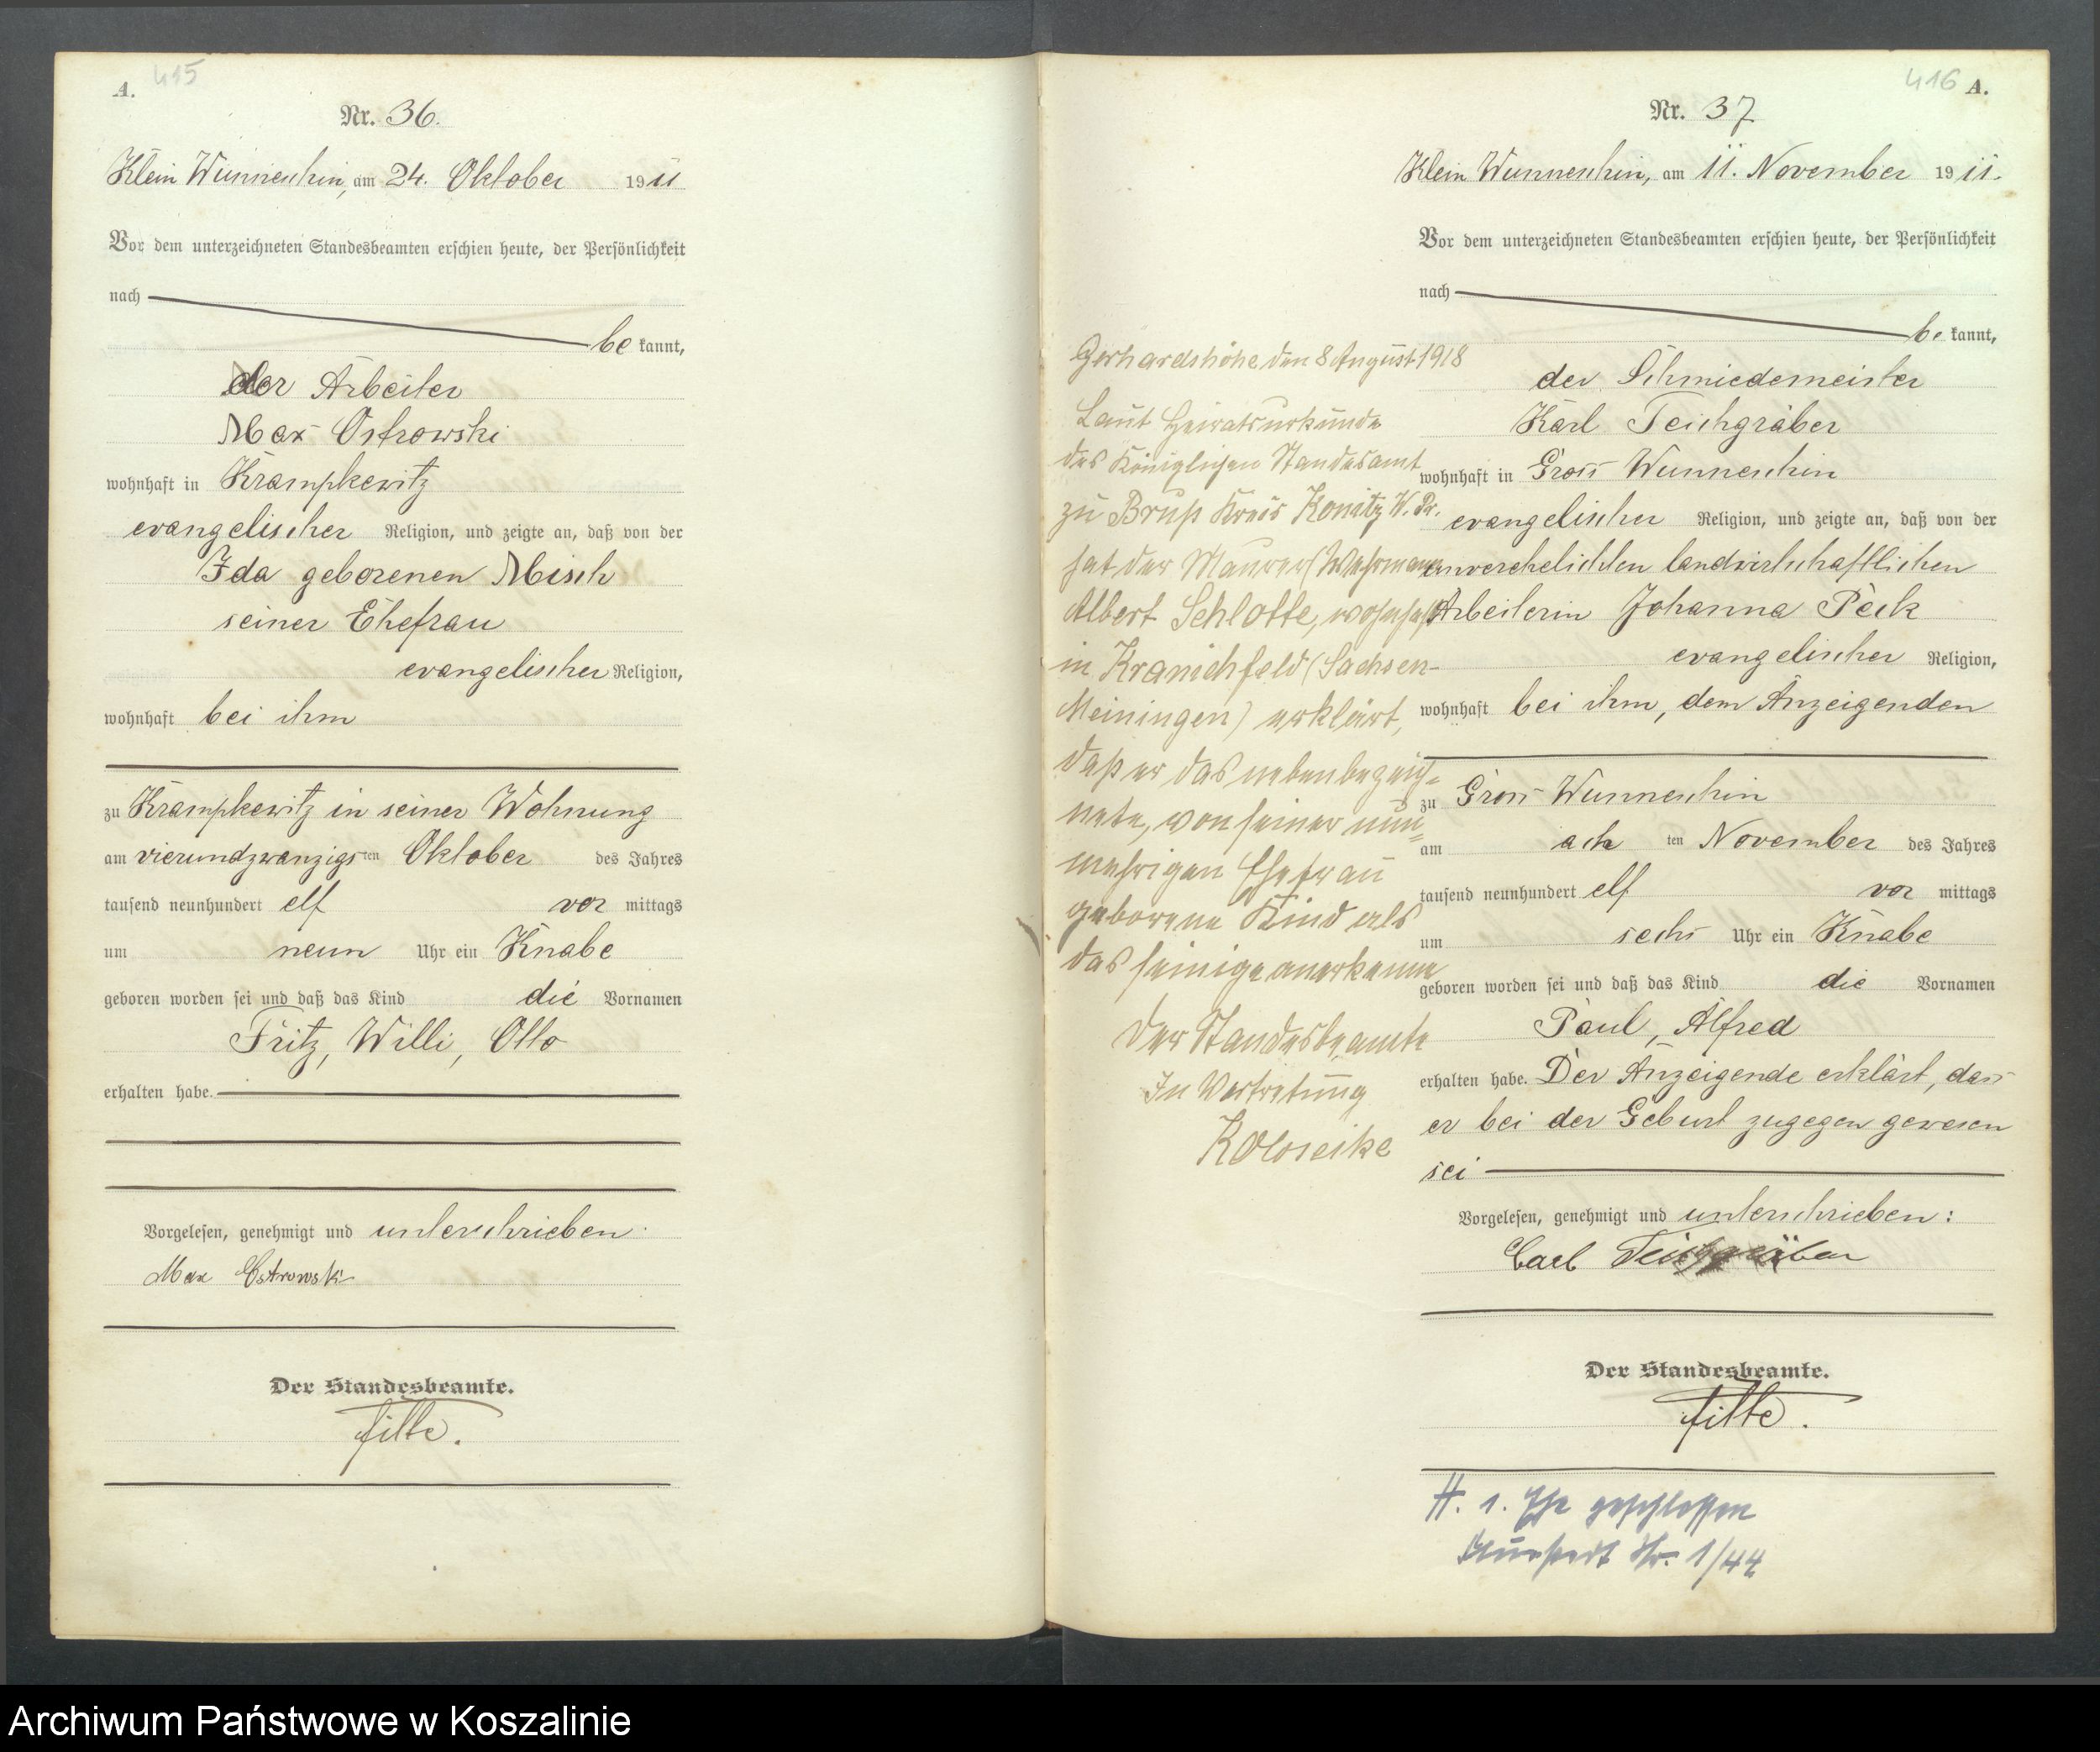 A. 415
Nr. 36.
Klein Wunneschin, am 24. Oktober 1911
Vor dem unterzeichneten Standesbeamten erschien heute, der Persönlichkeit
nach
be kannt,
der Arbeiter
Max Ostrowski
wohnhaft in Krampkewitz
evangelischer Religion, und zeigte an, daß von der
Ida geborenen Misch
seiner Ehefrau
evangelischer Religion,
wohnhaft bei ihm
zu Krampkewitz in seiner Wohnung
am vierundzwanzigsten Oktober des Jahres
tausend neunhundert elf vor mittags
um neun Uhr ein Knabe
geboren worden sei und daß das Kind die Vornamen
Fritz, Willi, Otto
erhalten habe.
Vorgelesen, genehmigt und unterschrieben.
Max Ostrowski
Der Standesbeamte.
416 A.
Nr. 37
Klein Wunneschin, am 11. November 1911.
Vor dem unterzeichneten Standesbeamten erschien heute, der Persönlichkeit
nach
be kannt,
der Schmiedemeister
Karl Teichgräber
wohnhaft in Gross Wunneschin
evangelischer Religion, und zeigte an, daß von der
unverehelichten landwirtschaftlichen
Arbeiterin Johanna Peik
evangelischer Religion,
wohnhaft bei ihm, dem Anzeigenden
zu Gross Wunneschin
am ach ten November des Jahres
tausend neunhundert elf vor mittags
um sechs Uhr ein Knabe
geboren worden sei und daß das Kind die Vornamen
Paul, Alfred
erhalten habe. Der Anzeigende erklärt, dass
er bei der Geburt zugegen gewesen
sei
Vorgelesen, genehmigt und unterschrieben:
Carl Teichgräber
Der Standesbeamte.
Gerhardshöhe den 8 August 1918
Laut Heiratsurkunde
des Königlichen Standesamt
zu Bruß Kreis Konitz W. Pr.
hat der Maurer (Wehrmann
Albert Schlotte, wohnhaft
in Kranichfeld (Sachsen-
Meiningen) erklärt,
daß er das nebenbezeich=
nete, von seiner nun=
mehrigen Ehefrau
geborene Kind als
das seinige anerkenne
Der Standesbeamte
In Vertretung
H. 1. Ehe geschlossen
Nr. 1/44
Archiwum Państwowe w Koszalinie